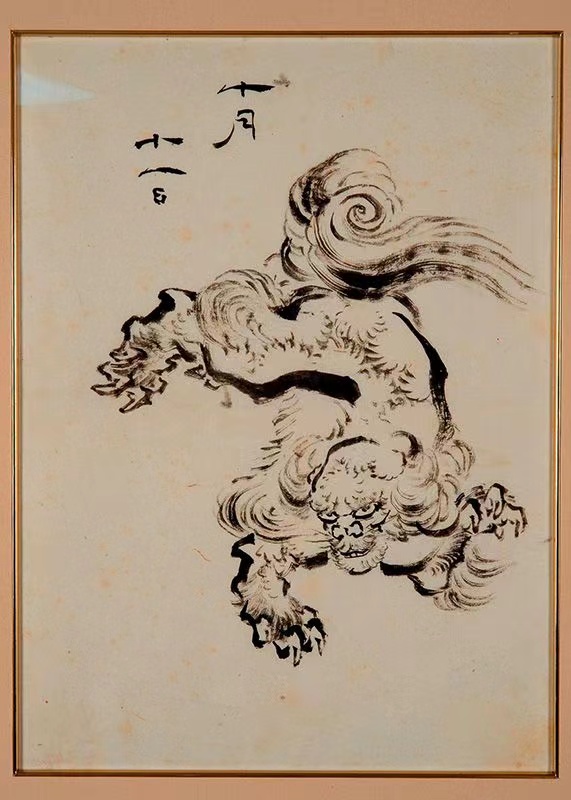 十月
十一日